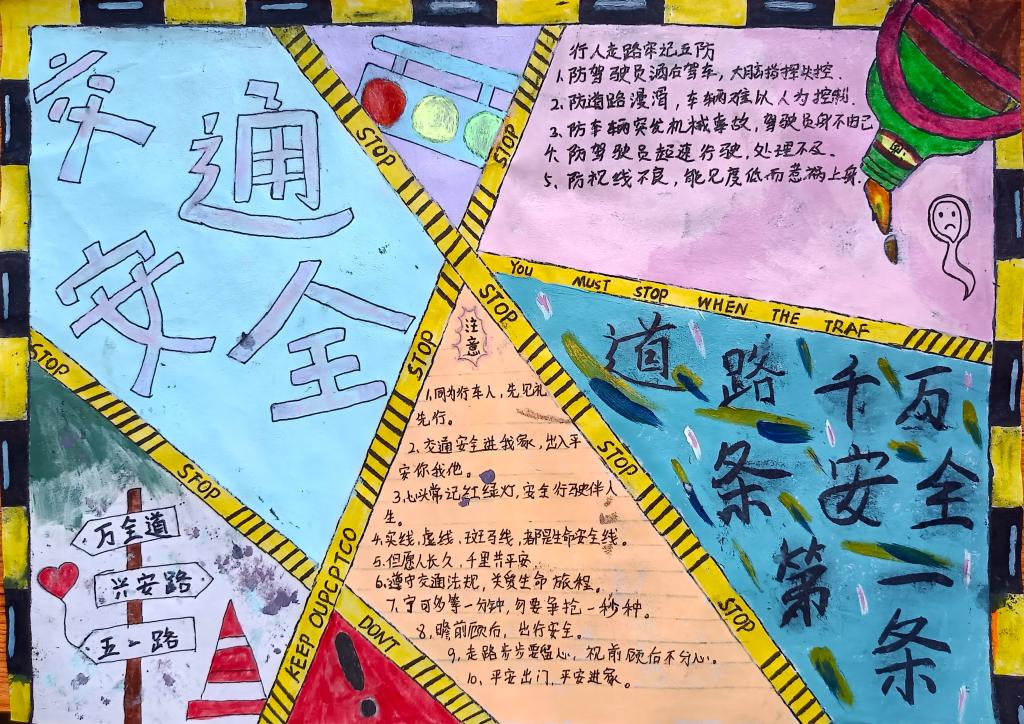 交通
安全
STOP
STOP
行人走路牢记五防
1.防驾驶员酒后驾车，大脑指挥失控.
2.防道路漫滑，车辆难以人为控制.
3.防车辆突发机械事故，驾驶员身不由己
4.防驾驶员超速行驶，处理不及.
5.防视线不良，能见度低而惹祸上身.
酒
STOP
STOP
YOU MUST STOP WHEN THE TRAF
道路千万
条安全
第一
条
注意
1.同为行车人，先见礼
先行。
2.交通安全进我家，出入平
安你我他。
3.心头常记红绿灯，安全行驶伴人
生。
4.实线、虚线、斑马线，都是生命安全线。
5.但愿人长久，千里共平安.
6.遵守交通法规，关爱生命旅程。
7.宁可多等一分钟，勿要争抢一秒种。
8.瞻前顾后，出行安全。
9.走路步步要留心，视前顾后不分心。
10.平安出门，平安进家。
STOP
STOP
STOP
STOP
万全道
兴安路
五一路
KEEP OUPCPTICO
DONT
!